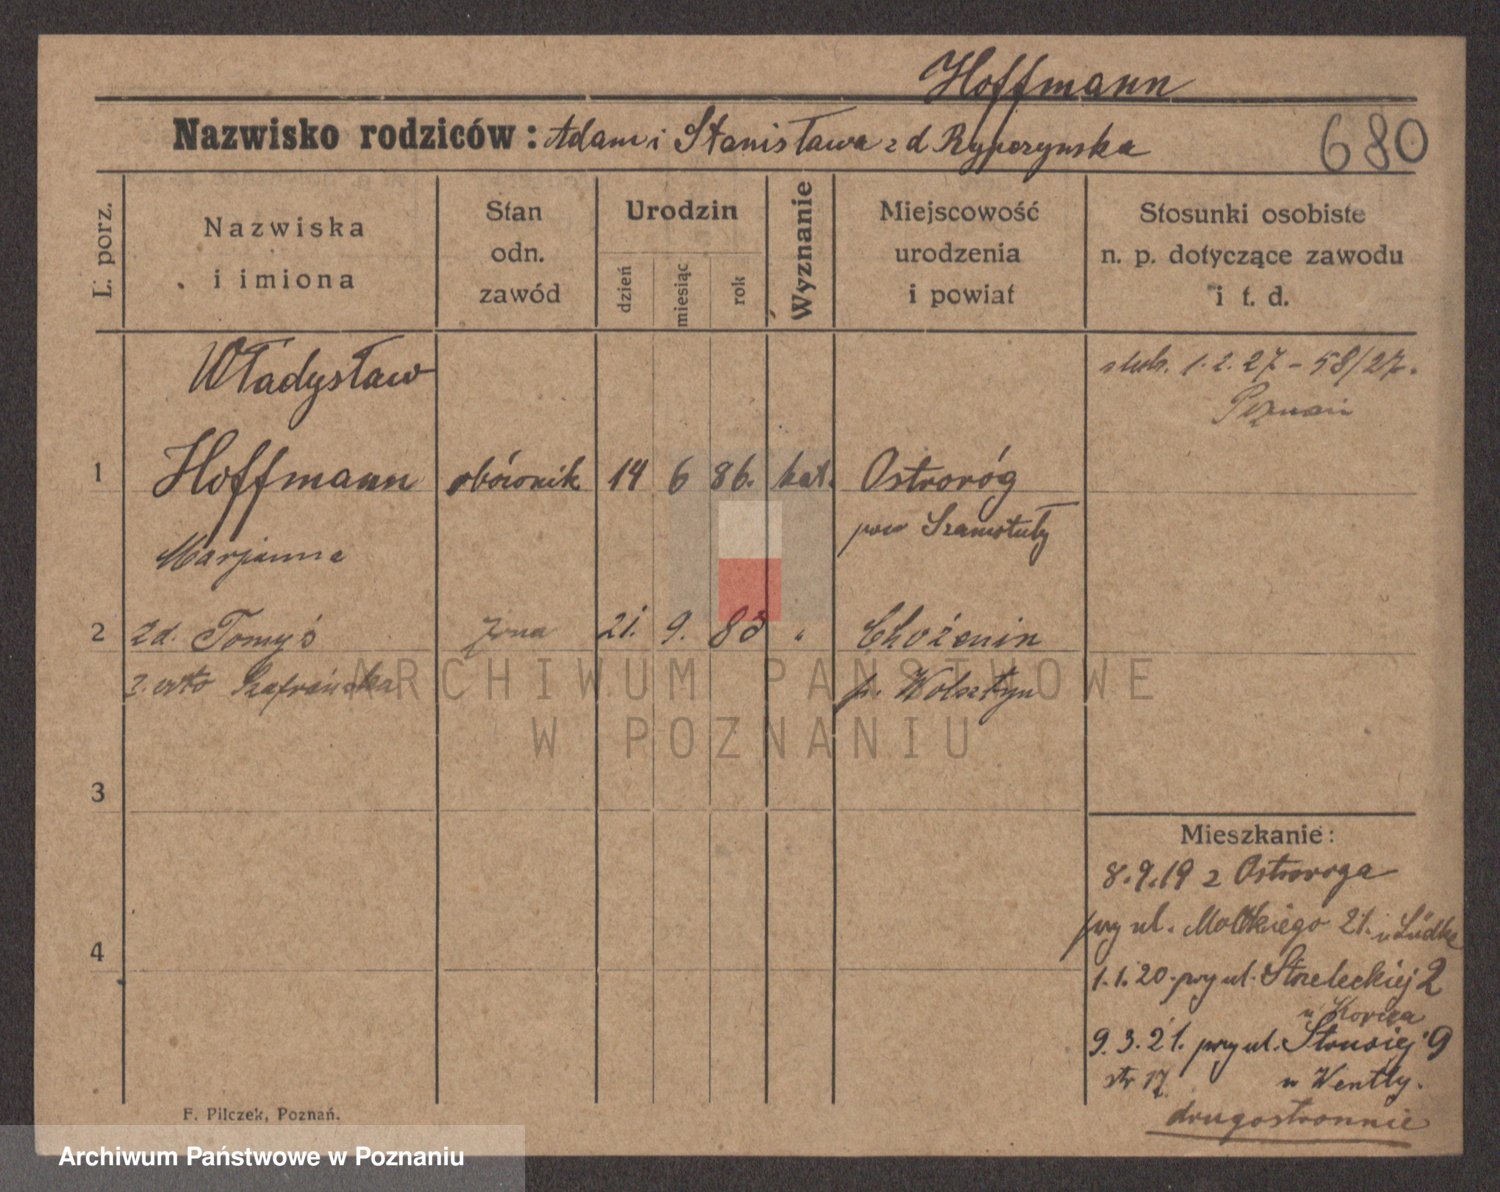 Hoffmann
Nazwisko rodziców: Adam i Stanisława z d Rypczynska
680
L. porz.
Nazwiska
i imiona
Stan
odn.
zawód
Urodzin
dzień
miesiąc
rok
Wyznanie
Miejscowość
urodzenia
i powiat
Stosunki osobiste
n. p. dotyczące zawodu
i t. d.
Władysław
ślub. 1.2.27 - 58/27.
Poznań
1 Hoffmann 14 6 86. kat. Ostroróg
pow Szamotuły
Marjanna
2 zd. Tomyś żona 21. 9. 83 " Chożemin
Szafrańska p. Wolsztyn
3
4
Mieszkanie:
8.9.19 z Ostroroga
przy ul. Moltkiego 21. u Lüdke
1.1.20. przy ul. Strzeleckiej 2
u
9.3.21. przy ul. 9
str 17 u
drugostronnie
F. Pilczek, Poznań.
ARCHIWUM PAŃSTWOWE
W POZNANIU
Archiwum Państwowe w Poznaniu